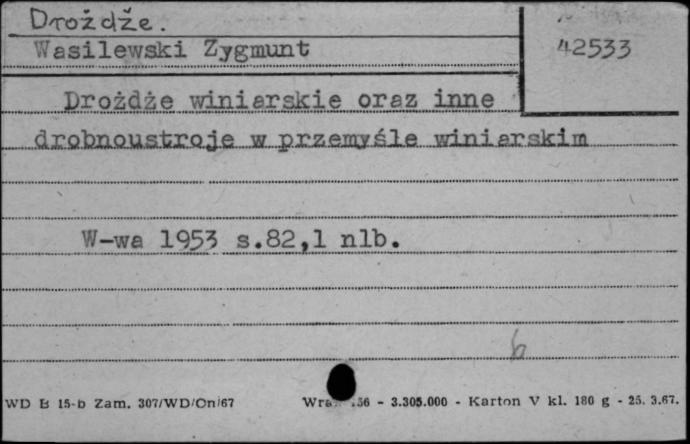 Drożdże.
Wasilewski Zygmunt
42533
Drożdże winiarskie oraz inne
drobnoustroje w przemyśle winiarskim
W-wa 1953 s.82,1 nlb.
b
WD B 15-b Zam. 307/WD/On/67 56 - 3.305.000 - Karton V kl. 180 g - 25. 3.67.